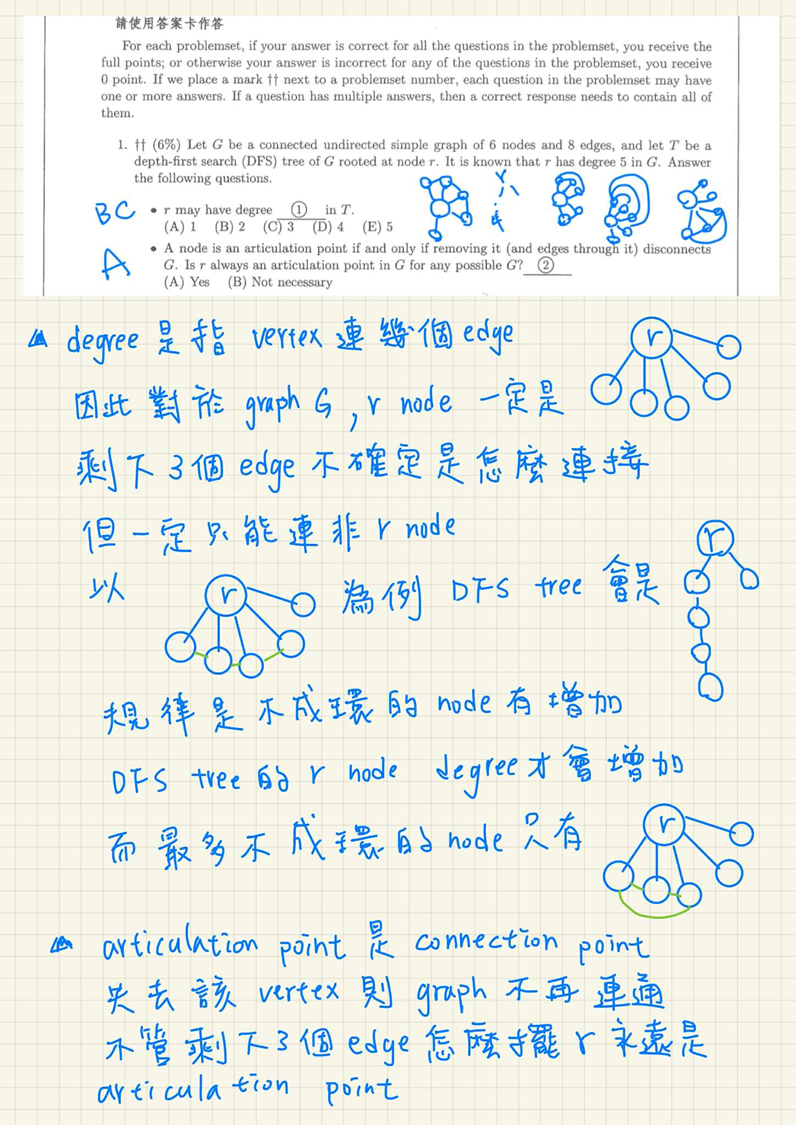 請使用答案卡作答
For each problemset, if your answer is correct for all the questions in the problemset, you receive the
full points; or otherwise your answer is incorrect for any of the questions in the problemset, you receive
0 point. If we place a mark †† next to a problemset number, each question in the problemset may have
one or more answers. If a question has multiple answers, then a correct response needs to contain all of
them.
1. †† (6%) Let G be a connected undirected simple graph of 6 nodes and 8 edges, and let T be a
depth-first search (DFS) tree of G rooted at node r. It is known that r has degree 5 in G. Answer
the following questions.
BC • r may have degree ① in T.
(A) 1 (B) 2 (C) 3 (D) 4 (E) 5
• A node is an articulation point if and only if removing it (and edges through it) disconnects
A G. Is r always an articulation point in G for any possible G? ②
(A) Yes (B) Not necessary
degree 是指 vertex 連幾個 edge
r
因此對於 graph G, r node 一定是
剩下3個 edge 不確定是怎麼連接
但一定只能連非 r node
r
以 r 為例 DFS tree 會是
規律是不成環的 node 有增加
DFS tree 的 r node degree 才會增加
而最多不成環的 node 只有 r
articulation point 是 connection point
失去該 vertex 則 graph 不再連通
不管剩下3個 edge 怎麼擺 r 永遠是
articulation point